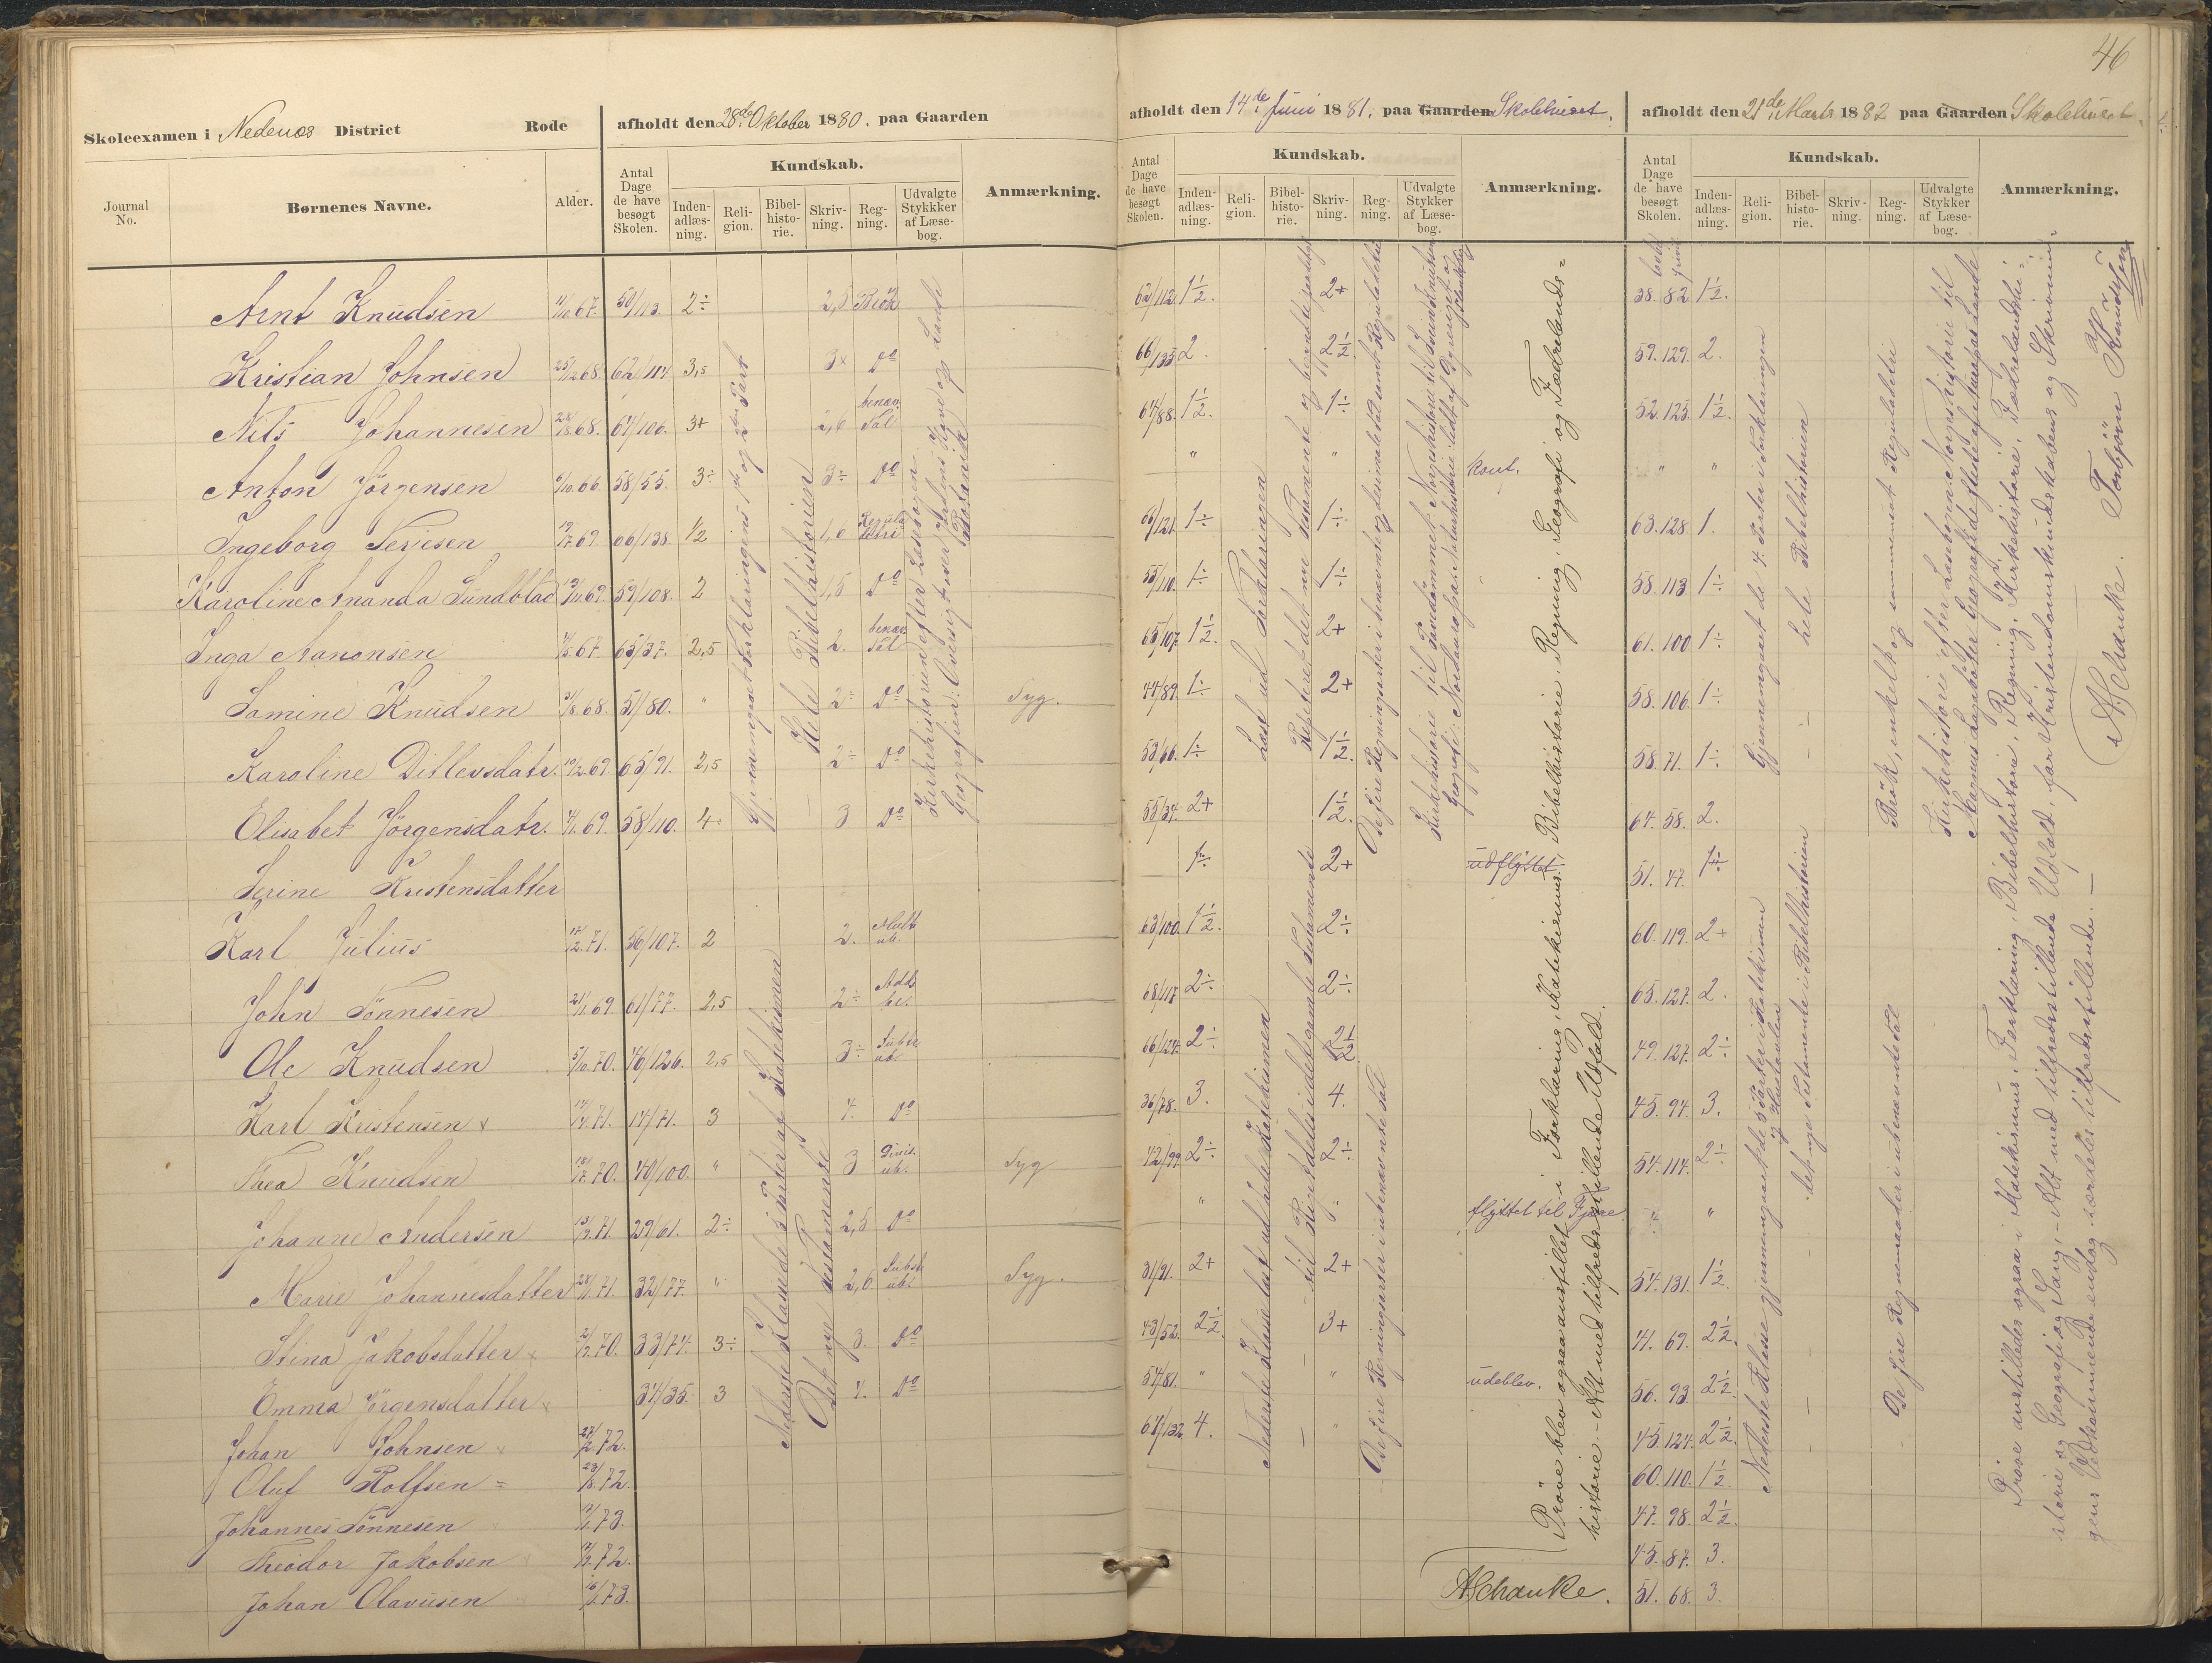 46
Skoleexamen i Nedenæs District Rode
afholdt den 28de Oktober 1880. paa Gaarden
afholdt den 14de Juni 1881. paa Gaarden Skolehuset.
afholdt den 21de Marts 1882 paa Gaarden Skolehuset.
Journal No.
Børnenes Navne.
Alder.
Antal Dage de have besøgt Skolen.
Kundskab.
Indenadlæsning.
Religion.
Bibelhistorie.
Skrivning.
Regning.
Udvalgte Stykker af Læsebog.
Anmærkning.
Antal Dage de have besøgt Skolen.
Kundskab.
Indenadlæsning.
Religion.
Bibelhistorie.
Skrivning.
Regning.
Udvalgte Stykker af Læsebog.
Anmærkning.
Antal Dage de have besøgt Skolen.
Kundskab.
Indenadlæsning.
Religion.
Bibelhistorie.
Skrivning.
Regning.
Udvalgte Stykker af Læsebog.
Anmærkning.
Arnt Knudsen 11/10 67. 50/113. 2÷ 2,5 Brök 62/112. 1½. 2+ 38. 82. 1½.
Kristian Johnsen 25/12 68. 62/114 3,5 3× Do 66/135 2. 2½ 59. 129. 2.
Nils Johannesen 68. 64/106. 3+ 2,6 benæv. Tal 64/88. 1½. 1÷ 52. 125. 1½.
Anton Jörgensen 6/10. 66. 58/55. 3÷ 3÷ Do " " konf. " "
Ingeborg Terjesen 69. 66/138 ½ 1,6 Regula detri 66/121. 1÷ 1÷ 63. 128. 1.
Karoline Ananda Sundblad 69. 59/108. 2 1,5 Do 55/110. 1÷ 1÷ 58. 113. 1÷
Inga Aanonsen 67. 65/37. 2,5 2. benæv. Tal 65/107. 1½. 2+ 61. 100. 1÷
Samine Knudsen 31/8. 68. 51/80. " 2÷ Do Syg. 44/89. 1÷ 2+ 58. 106. 1÷
Karoline Ditlevsdatr. 19/2. 69. 65/91. 2,5 2÷ Do 53/66. 1÷ 1½. 58. 71. 1÷
Elisabet Jörgensdatr. 69. 58/110. 4 3 Do 55/34. 2+ 1½. 64. 58. 2.
Serine Kristensdatter 1÷ 2+ udflyttet 51. 47. 1÷
Karl Julius 17/2. 71. 56/107. 2 2. Mult. ub. 63/100. 1½. 2÷ 60. 119. 2+
John Tönnesen 69. 61/77. 2,5 2÷ Add. be. 68/117 2÷ 2÷ 65. 127. 2.
Ole Knudsen 5/10. 70. 46/126. 2,5 3÷ Subtr. ub. 66/124. 2÷ 2½ 49. 127. 2÷
Karl Kristensen × 71. 14/71. 3 4. Do 36/78. 3. 4. 45. 94. 3.
Thea Knudsen 70. 40/100. " 3 Divis. ub. Syg 42/99. 2÷ 2÷ 54. 114. 2÷
Johanne Andersen 71. 29/61. 2÷ 2,5 Do " " flyttet til Fjære " "
Marie Johannesdatter 71. 32/77. " 2,6 Subtr. ub. Syg. 31/91. 2+ 2+ 54. 131. 1½.
Stina Jakobsdatter 70. 33/74. 3÷ 3. Do 43/52. 2½. 3+ 41. 69. 2½.
Emma Jörgensdatter × 34/35. 3 4. Do 54/81. " " udeblev. 56. 93. 2½.
Johan Johnsen 72. 64/132. 4. " 45. 124. 2½.
Oluf Rolfsen 72. 60. 110. 1½.
Johannes Tönnesen 73. 47. 98. 2½.
Theodor Jakobsen 72. 45. 87. 3.
Johan Olausen 73. 51. 68. 3.
Gjennemgaaet Forklaringens 1ste og 2den Part
Hele Bibelhistorien
Kirkehistorien efter Læsebogen.
Geografien: Oversigt over Jordens Kloder og Lande
Botanik
Nederste Klasse de 3 Parter af Katekismen
Det nye Testamente
Læst ud Forklaringen
Repeteret det nye Testamente
De fire Regningsarter i benævnte og decimale Tal samt Reguladetri
Nederste Klasse læst ud hele Katekismen
– til Kirkedelsidet gamle Testamente
De fire Regningsarter i ubenævnte Tal
Pröve blev ogsaa anstillet i Forklaring, Katekismus, Bibelhistorie, Regning, Geografi og Fædrelands=
historie. – Alt med tilfredsstillende Udfald.
ASchanke.
Gjennemgaaet de 4 Parter i Forklaringen
– hele Bibelhistorien
Brök, enkelt og sammensat Reguladetri
Kirkehistorie efter Læsebogen. Norgeshistorie til
Magnus Lagaböter. Geografi de fleste af Europas Lande
Nederste Klasse gjennemgaaet de 5 Parter i Katekismen
og Hustavlen
– det nye Testamente i Bibelhistorien
De fire Regnemaader i ubenævnte Tal
Pröve anstilledes ogsaa i Katekismus, Forklaring, Bibelhistorie, Regning, Kirkehistorie, Fædrelandshi=
storie og Geografi og Sang, – Alt med tilfredsstillende Udfald, for Kristendomskundskabens og Skrivnin=
gens Vedkommende endog særdeles tilfredsstillende. –
ASchanke. Torbjörn Knudsen